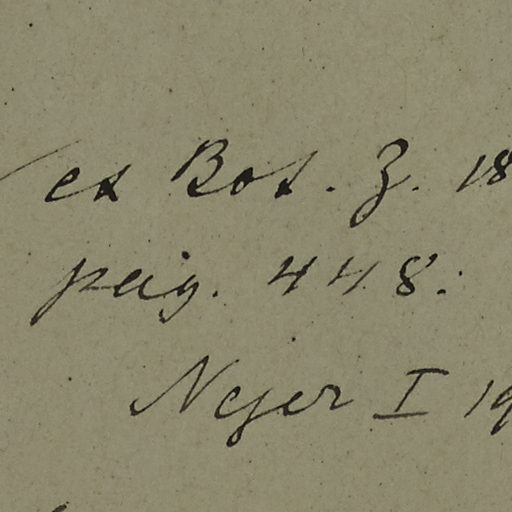 ex Bot. Z. 18
pag. 448.
Neger I 19